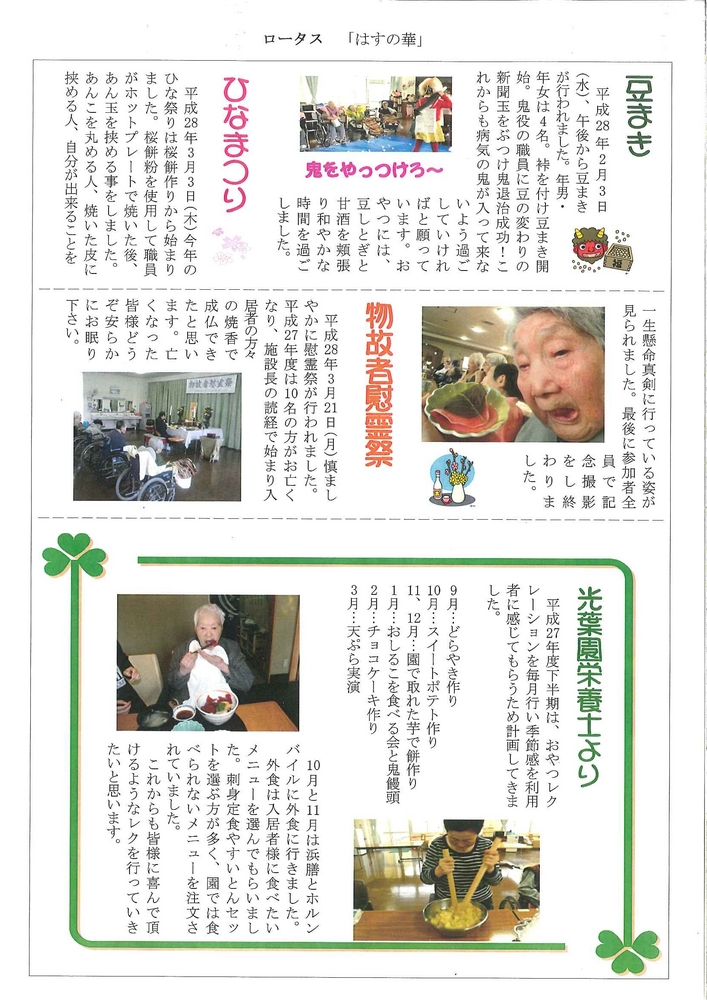 ロータス 「はすの華」
豆まき
平成28年2月3日
(水)、午後から豆まき
が行われました。年男・
年女は4名。裃を付け豆まき開
始。鬼役の職員に豆の変わりの
新聞玉をぶつけ鬼退治成功!こ
れからも病気の鬼が入って来な
いよう過ご
していけれ
ばと願って
います。お
やつには、
豆しとぎと
甘酒を頬張
り和やかな
時間を過ご
しました。
鬼をやっつけろ〜
福
ひなまつり
平成28年3月3日(木)今年の
ひな祭りは桜餅作りから始まり
ました。桜餅粉を使用して職員
がホットプレートで焼いた後、
あん玉を挟める事をしました。
あんこを丸める人、焼いた皮に
挟める人、自分が出来ることを
一生懸命真剣に行っている姿が
見られました。最後に参加者全
員で記
念撮影
をし終
わりま
した。
物故者慰霊祭
平成28年3月21日(月)慎まし
やかに慰霊祭が行われました。
平成27年度は10名の方がお亡く
なり、施設長の読経で始まり入
居者の方々
の焼香で
成仏でき
たと思い
ます。亡
くなった
皆様どう
ぞ安らか
にお眠り
下さい。
物故者慰霊祭
光葉園栄養士より
平成27年度下半期は、おやつレク
レーションを毎月行い季節感を利用
者に感じてもらうため計画してきま
した。
9月…どらやき作り
10月…スイートポテト作り
11、12月…園で取れた芋で餅作り
1月…おしるこを食べる会と鬼饅頭
2月…チョコケーキ作り
3月…天ぷら実演
10月と11月は浜膳とホルン
バイルに外食に行きました。
外食は入居者様に食べたい
メニューを選んでもらいまし
た。刺身定食やすいとんセッ
トを選ぶ方が多く、園では食
べられないメニューを注文さ
れていました。
これからも皆様に喜んで頂
けるようなレクを行っていき
たいと思います。